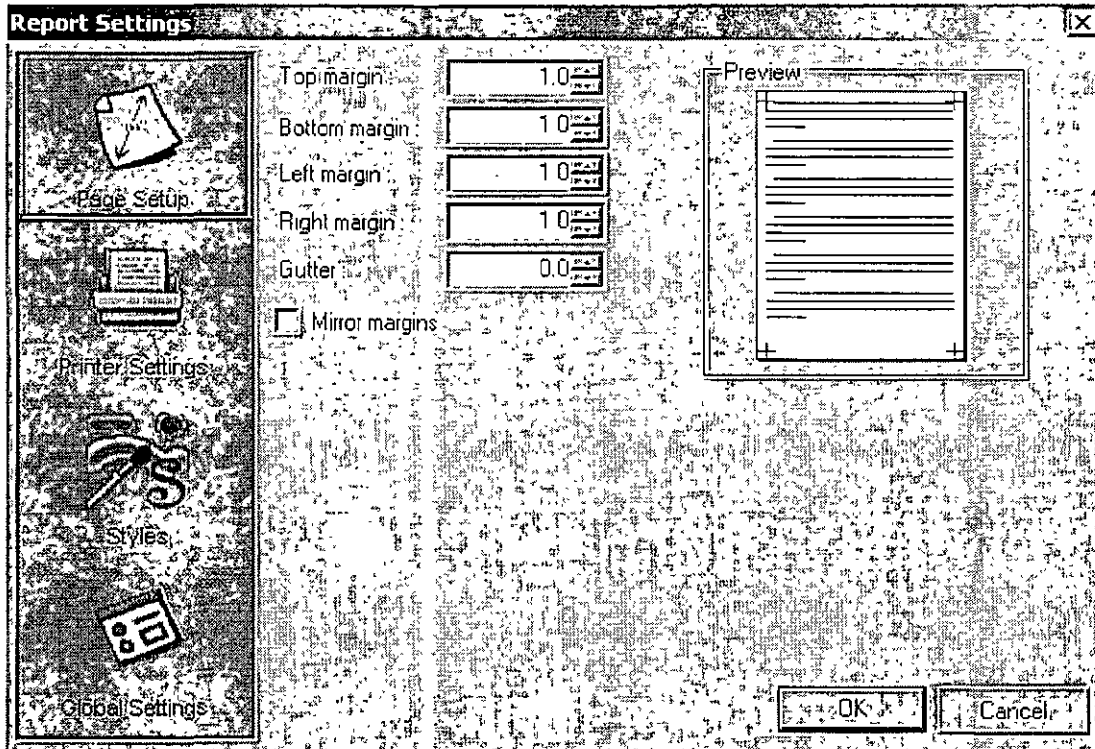 Report Settings
Page Setup
Printer Settings
Styles
Global Settings
Top margin :
1.0
Bottom margin :
1.0
Left margin :
1.0
Right margin :
1.0
Gutter :
0.0
Mirror margins
Preview
OK
Cancel